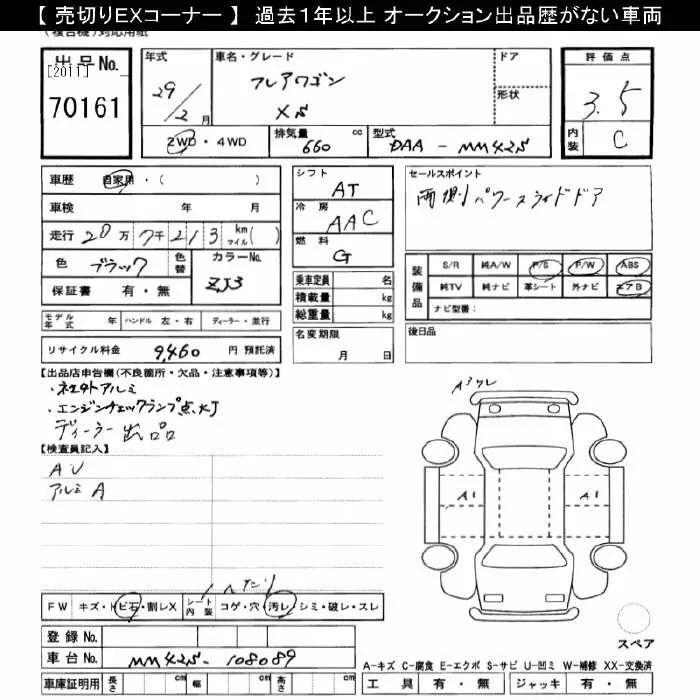 【 売切りEXコーナー 】 過去1年以上 オークション出品歴がない車両
(複合機)対応用紙
出品No. 年式 車名・グレード ドア 評価点
[2011] 29/2月 フレアワゴン 形状 3.5
70161 XS 内装 C
2WD・4WD 排気量 660 cc 型式 DAA-MM42S
車歴 自家用・( ) シフト AT セールスポイント
車検 年 月 冷房 AAC 両側パワースライドドア
走行 2 0 万 7 千 2 1 3 km マイル ( ) 燃料 G
色 ブラック 色替 カラーNo. ZJ3 乗車定員 名
保証書 有・無 積載量 kg
総重量 kg
装備品 S/R 純A/W P/S P/W ABS
純TV 純ナビ 革シート 外ナビ エアB
ナビ型番:
モデル年式 年 ハンドル 左・右 ディーラー・並行 名変期限 後日品
リサイクル料金 9,460 円 預託済 月 日
【出品店申告欄(不良箇所・欠品・注意事項等)】
・社外アルミ
・エンジンチェックランプ点灯
ディーラー出品
【検査員記入】
AU
アルミA
A3 ワレ
A1 A1
ヘたり
FW キズ・トビ石・割レX シート内装 コゲ・穴・汚レ・シミ・破レ・スレ
登録No.
車台No. MM42S-108089
スペア
A-キズ C-腐食 E-エクボ S-サビ U-凹ミ W-補修 XX-交換済
車庫証明用 長さ cm 幅 cm 高さ cm 工具 有・無 ジャッキ 有・無